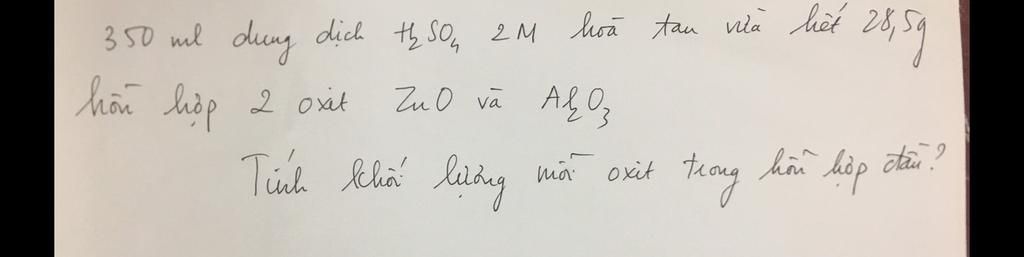 350 ml dung dịch H₂SO₄ 2M hoà tan vừa hết 28,5g
hỗn hợp 2 oxit ZnO và Al₂O₃
Tính khối lượng mỗi oxit trong hỗn hợp đầu?